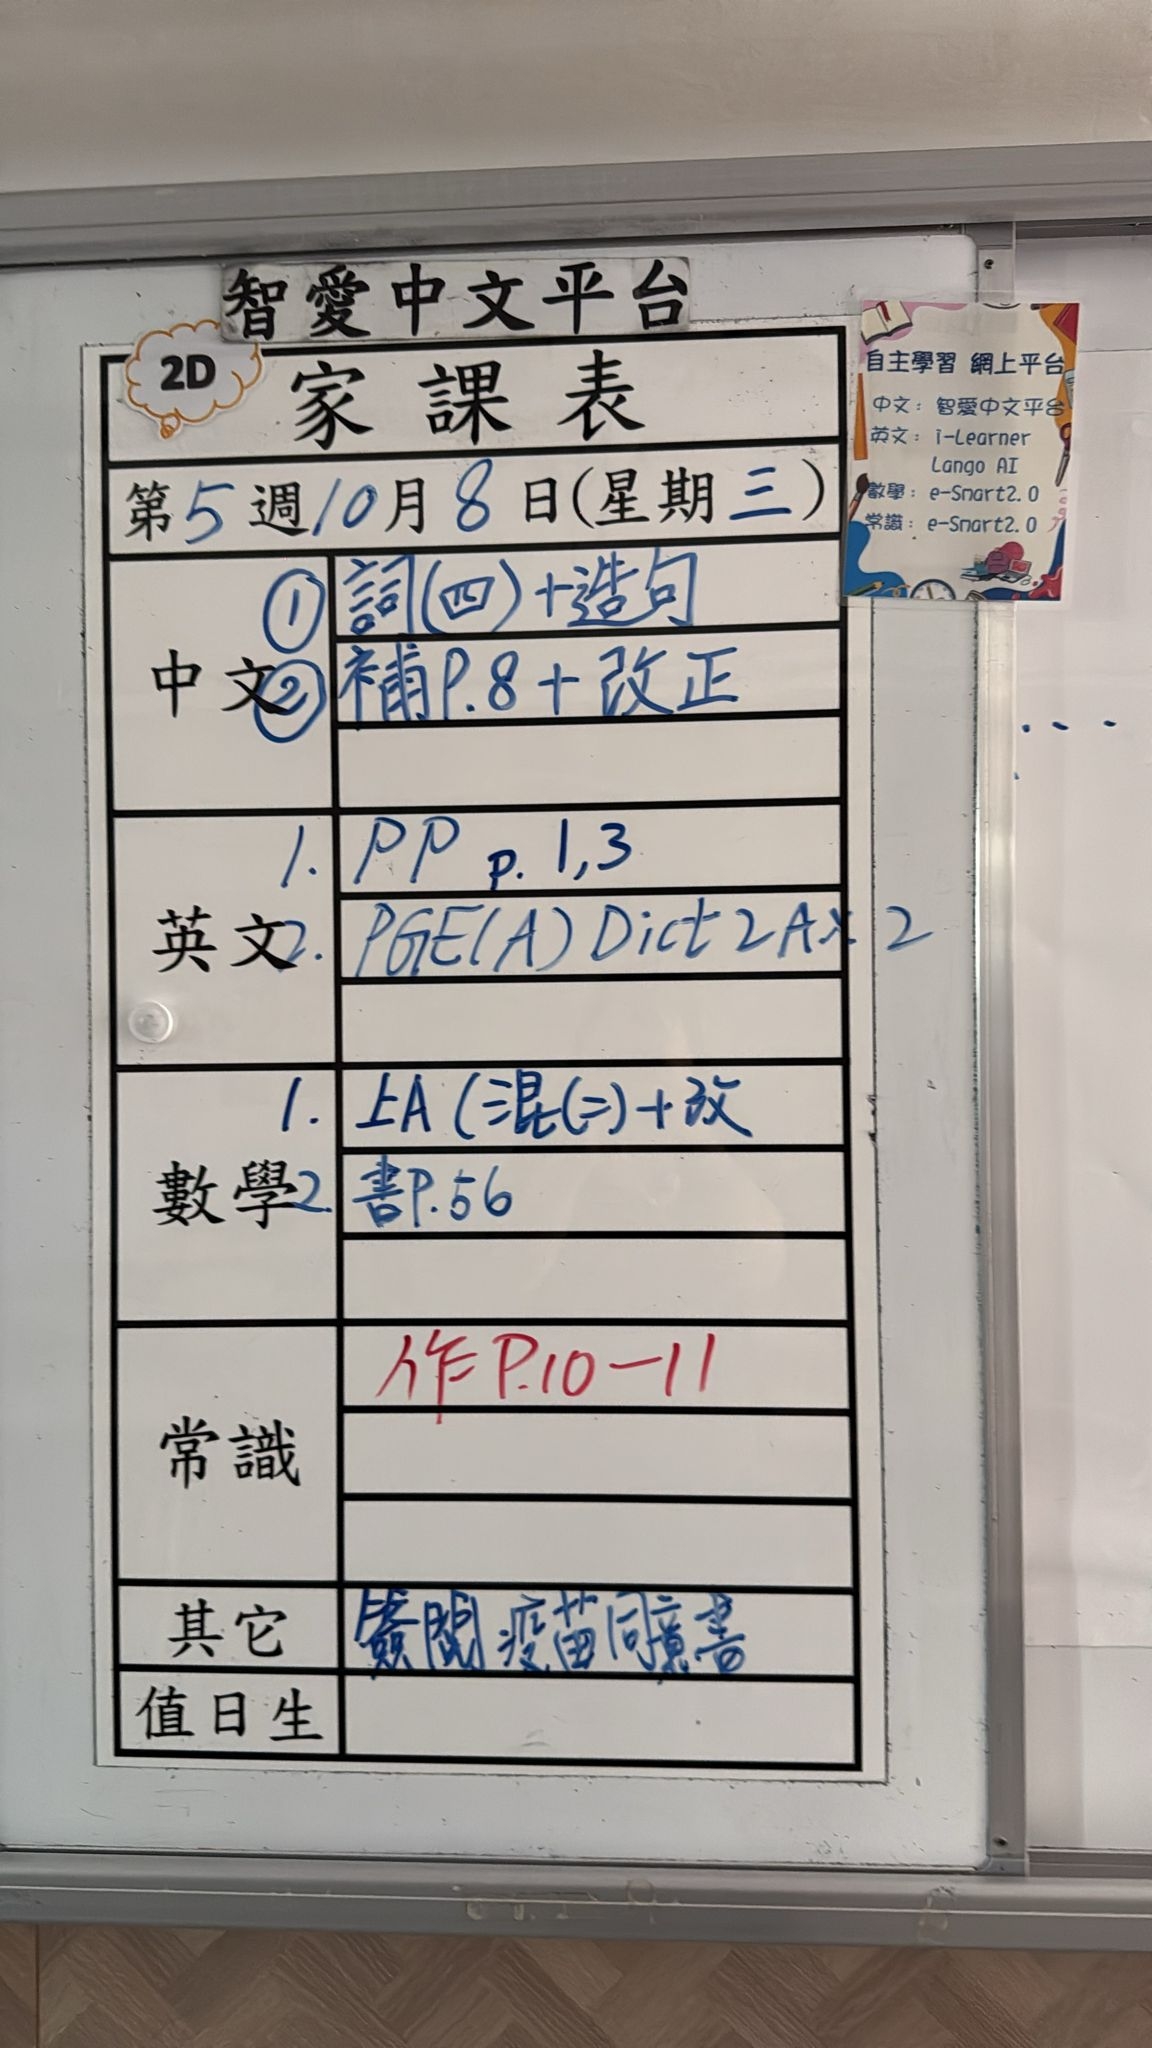 智愛中文平台
2D
家課表
第5週10月8日(星期三)
中文
① 詞(四)+造句
② 補P.8+改正
英文
1. PP p. 1,3
2. PGE(A) Dict 2A x 2
數學
1. 上A(混(二)+改
2. 書P.56
常識
作P.10-11
其它
簽閱疫苗同意書
值日生
自主學習 網上平台
中文：智愛中文平台
英文：i-Learner
Lango AI
數學：e-Smart2.0
常識：e-Smart2.0